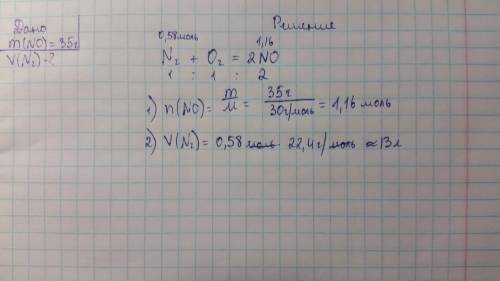 Дано
m(NO) = 35г
V(N₂) - ?
Решение
0,58моль 1,16
N₂ + O₂ = 2NO
1 : 1 : 2
1) n(NO) = m/M = 35г/30г/моль = 1,16 моль
2) V(N₂) = 0,58 моль · 22,4г/моль ≈ 13л